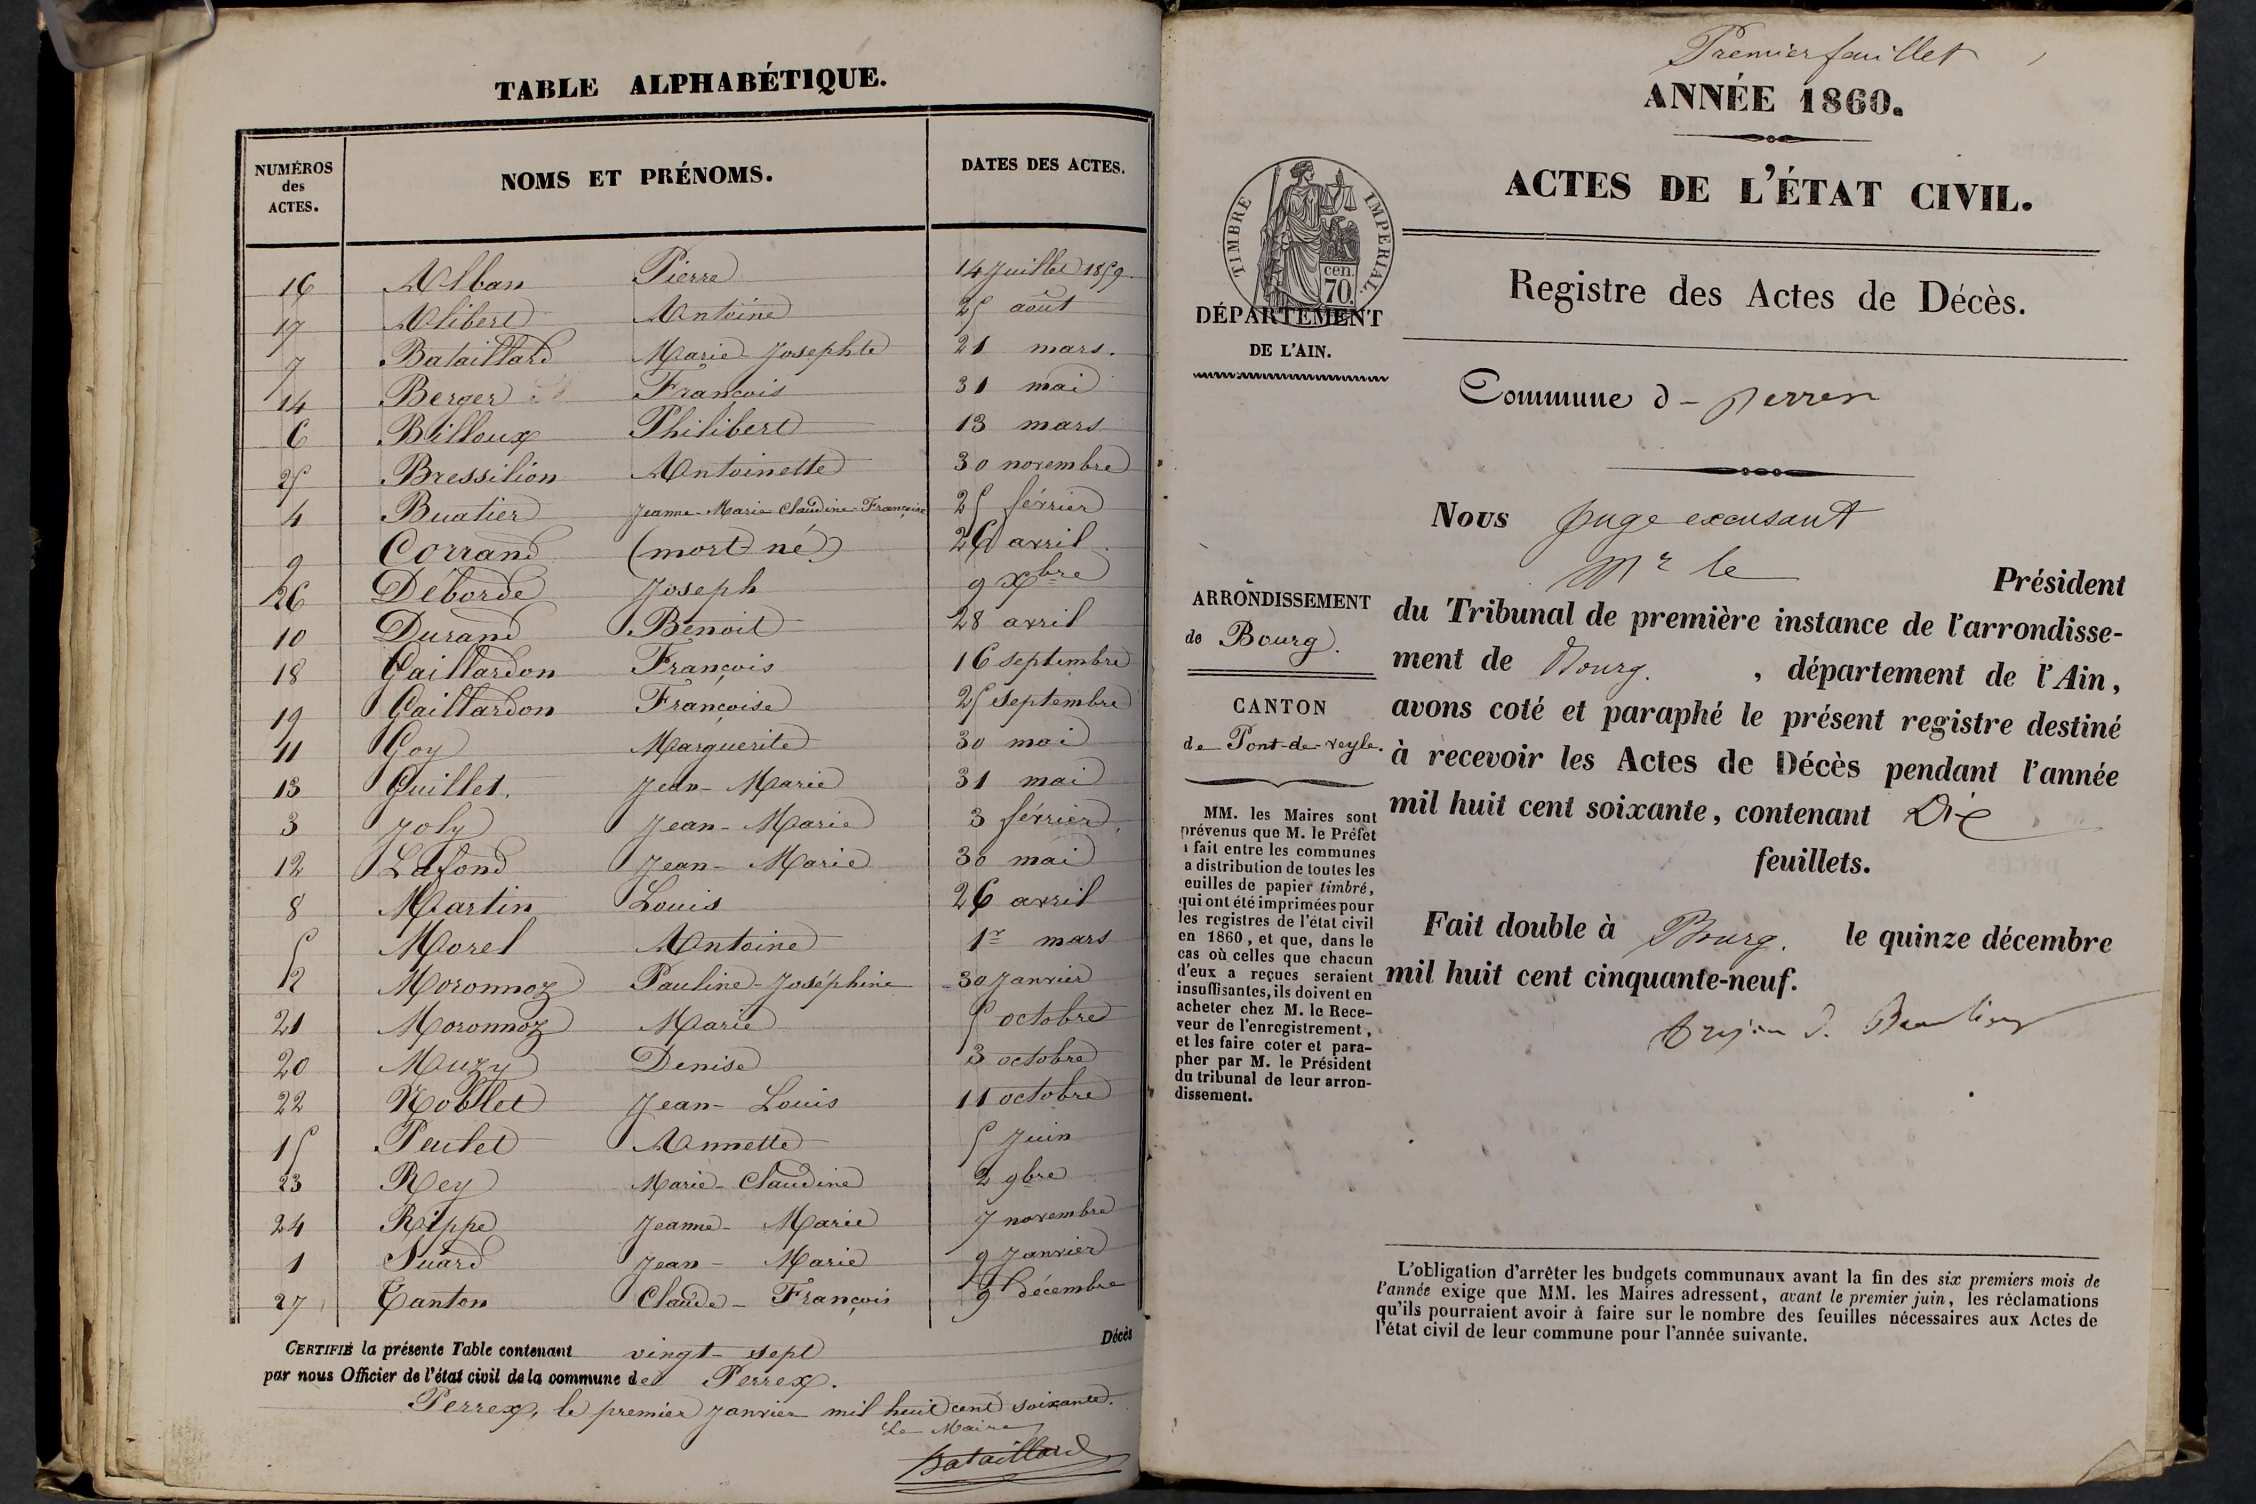 TABLE ALPHABÉTIQUE.
NUMÉROS des ACTES. NOMS ET PRÉNOMS. DATES DES ACTES.
16 Alban Pierre 14 Juillet 1859
17 Alibert Antoine 25 août
7 Bataillard Marie Josephte 21 mars.
14 Berger François 31 mai
6 Billoux Philibert 13 mars
25 Bressilion Antoinette 30 novembre
4 Buatier Jeanne-Marie Claudine-Françoise 25 février
9 Corrand (mort né) 26 avril
26 Déborde Joseph 9 Xbre
10 Durand Benoit 28 avril
18 Gaillardon François 16 septembre
19 Gaillardon Françoise 25 septembre
11 Goy Marguerite 30 mai
13 Guillet. Jean-Marie 31 mai
3 Joly Jean-Marie 3 février
12 Lafond Jean-Marie 30 mai
8 Martin Louis 26 avril
5 Morel Antoine 1r mars
2 Moronnoz Pauline-Joséphine 30 Janvier
21 Moronnoz Marie 5 octobre
20 Muzy Denise 3 octobre
22 Noblet Jean-Louis 11 octobre
15 Peulet Annette 5 Juin
23 Rey Marie-Claudine 2 9bre
24 Rippe Jeanne-Marie 7 novembre
1 Suard Jean-Marie 9 Janvier
27 Tanton Claude-François 9 décembre
CERTIFIÉ la présente Table contenant vingt-sept Décès
par nous Officier de l'état civil de la commune de Perrex.
Perrex, le premier Janvier mil huit cent soixante.
Le Maire
Bataillard
Premier feuillet
ANNÉE 1860.
ACTES DE L'ÉTAT CIVIL.
TIMBRE IMPERIAL
cen.
70.
DÉPARTEMENT
DE L'AIN.
Registre des Actes de Décès.
Commune d - perrex
Nous Juge excusant
Mr le Président
du Tribunal de première instance de l'arrondisse-
ment de Bourg. , département de l'Ain,
avons coté et paraphé le présent registre destiné
à recevoir les Actes de Décès pendant l'année
mil huit cent soixante, contenant Dix
feuillets.
Fait double à Bourg. le quinze décembre
mil huit cent cinquante-neuf.
ARRONDISSEMENT
de Bourg.
CANTON
de Pont-de-veyle.
MM. les Maires sont
prévenus que M. le Préfet
a fait entre les communes
la distribution de toutes les
feuilles de papier timbré,
qui ont été imprimées pour
les registres de l'état civil
en 1860, et que, dans le
cas où celles que chacun
d'eux a reçues seraient
insuffisantes, ils doivent en
acheter chez M. le Rece-
veur de l'enregistrement,
et les faire coter et para-
pher par M. le Président
du tribunal de leur arron-
dissement.
L'obligation d'arrêter les budgets communaux avant la fin des six premiers mois de
l'année exige que MM. les Maires adressent, avant le premier juin, les réclamations
qu'ils pourraient avoir à faire sur le nombre des feuilles nécessaires aux Actes de
l'état civil de leur commune pour l'année suivante.